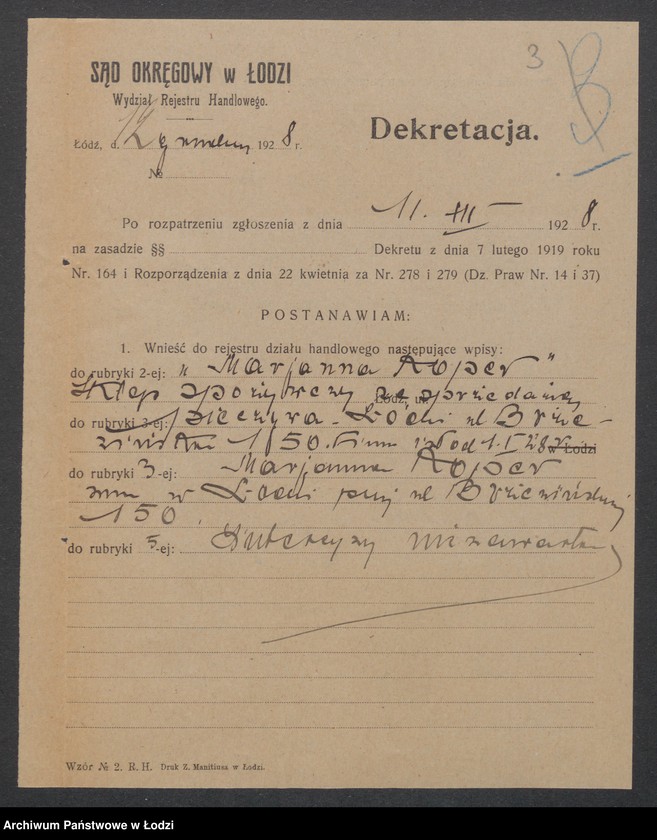 3
B
SĄD OKRĘGOWY w ŁODZI
Wydział Rejestru Handlowego.
Dekretacja.
Łódź, d. 12 grudnia 1928 r.
№
Po rozpatrzeniu zgłoszenia z dnia 11. XII 1928 r.
na zasadzie §§ Dekretu z dnia 7 lutego 1919 roku
Nr. 164 i Rozporządzenia z dnia 22 kwietnia za Nr. 278 i 279 (Dz. Praw Nr. 14 i 37)
POSTANAWIAM:
1. Wnieść do rejestru działu handlowego następujące wpisy:
do rubryki 2-ej: „Marjanna Roper"
Sklep spożywczy ze sprzedażą
Łódź, ul.
do rubryki 3-ej: pieczywa - Łódź ul Brze-
zińska 150. Firma istn. od 1.I 28 r w Łodzi
do rubryki 3-ej: Marjanna Roper
zam w Łodzi przy ul Brzezińskiej
150
do rubryki 5-ej: Intercyzy nie zawarła
Wzór № 2. R. H. Druk Z. Manitiusa w Łodzi.
Archiwum Państwowe w Łodzi